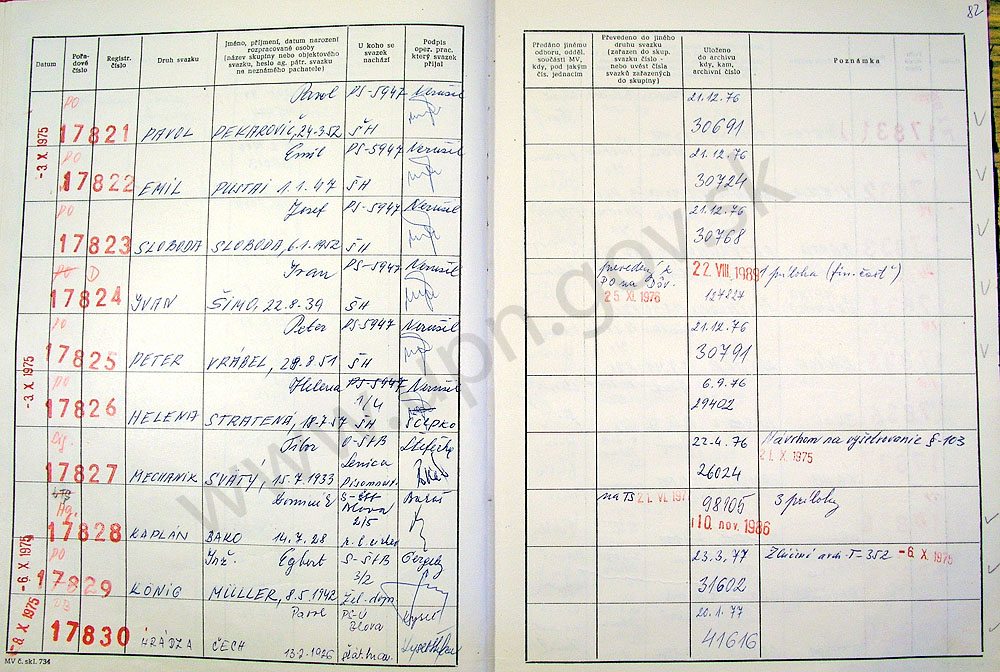 82
Datum
Pořa-
dové
číslo
Registr.
číslo
Druh svazku
Jméno, příjmení, datum narození
rozpracované osoby
(název skupiny nebo objektového
svazku, heslo ag. pátr. svazku
na neznámého pachatele)
U koho se
svazek
nachází
Podpis
oper. prac.
který svazek
přijal
Předáno jinému
odboru, odděl.
součásti MV,
kdy, pod jakým
čís. jednacím
Převedeno do jiného
druhu svazku
(zařazen do skup.
svazku číslo -
nebo uvést čísla
svazků zařazených
do skupiny)
Uloženo
do archivu
kdy, kam,
archivní číslo
Poznámka
- 3. X. 1975
PO
Pavol PS-5947 Nerušil
17821 PAVOL PEKAROVIČ, 24-3-52 ŠH
21.12.76
30691
PO
Emil PS-5947 Nerušil
17822 EMIL PUSTAI 1.1.47 ŠH
21.12.76
30724
PO
Jozef PS-5947 Nerušil
17823 SLOBODA SLOBODA, 6.1.1952 ŠH
21.12.76
30768
PO D
Ivan PS-5947 Nerušil
17824 IVAN ŠIMO, 22.8.39 ŠH
prevedený k
PO na Dôv.
25 XI. 1976
22. VIII. 1989
127827
1 príloha (fin. časť)
- 3. X. 1975
PO
Peter PS-5947 Nerušil
17825 PETER VRÁBEL, 28.8.51 ŠH
21.12.76
30791
PO
Helena PS-5947 Nerušil
1/4
17826 HELENA STRATENÁ, 18.7.57 ŠH ŠČEPKO
6.9.76
29402
Sig.
Tibor O-ŠtB
Senica
17827 MECHANIK SVÄTÝ, 15.7.1933 Písomnut.
22.4.76
26024
Návrhom na vyšetrovanie §-103
2 1. X. 1975
Ag.
Dominik S-ŠtB
Blava
2/5
17828 KAPLÁN BAKO 14.7.28
na TS
98105
10. nov. 1986
3 prílohy
- 6. X. 1975
PO
Inž. Egbert S-ŠtB
3/2
17829 KÖNIG MÜLLER, 8.5.1942 Žel.dom.
23.3.77
31602
Zlúčené arch. T-352 - 6. X. 1975
- 8. X. 1975
Pavel
Blava
17830 HRÁDZA ČECH 13.7.1926
20.1.77
41616
MV č. skl. 734
www.upn.gov.sk